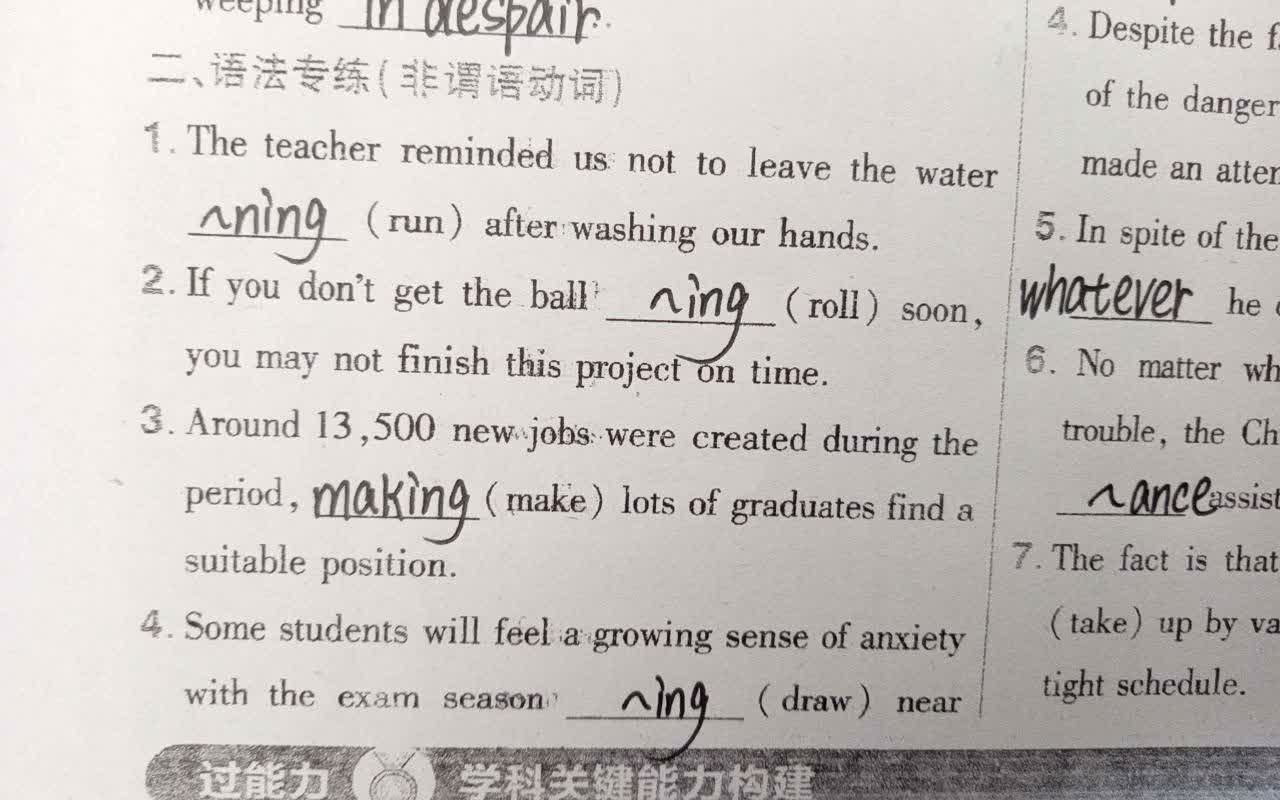 weeping in despair.
二、语法专练(非谓语动词)
1. The teacher reminded us not to leave the water
~ning (run) after washing our hands.
2. If you don't get the ball ~ing (roll) soon,
you may not finish this project on time.
3. Around 13,500 new jobs were created during the
period, making (make) lots of graduates find a
suitable position.
4. Some students will feel a growing sense of anxiety
with the exam season ~ing (draw) near
过能力 学科关键能力构建
4. Despite the f
of the danger
made an atter
5. In spite of the
whatever he
6. No matter wh
trouble, the Ch
~ance assist
7. The fact is that
(take) up by va
tight schedule.